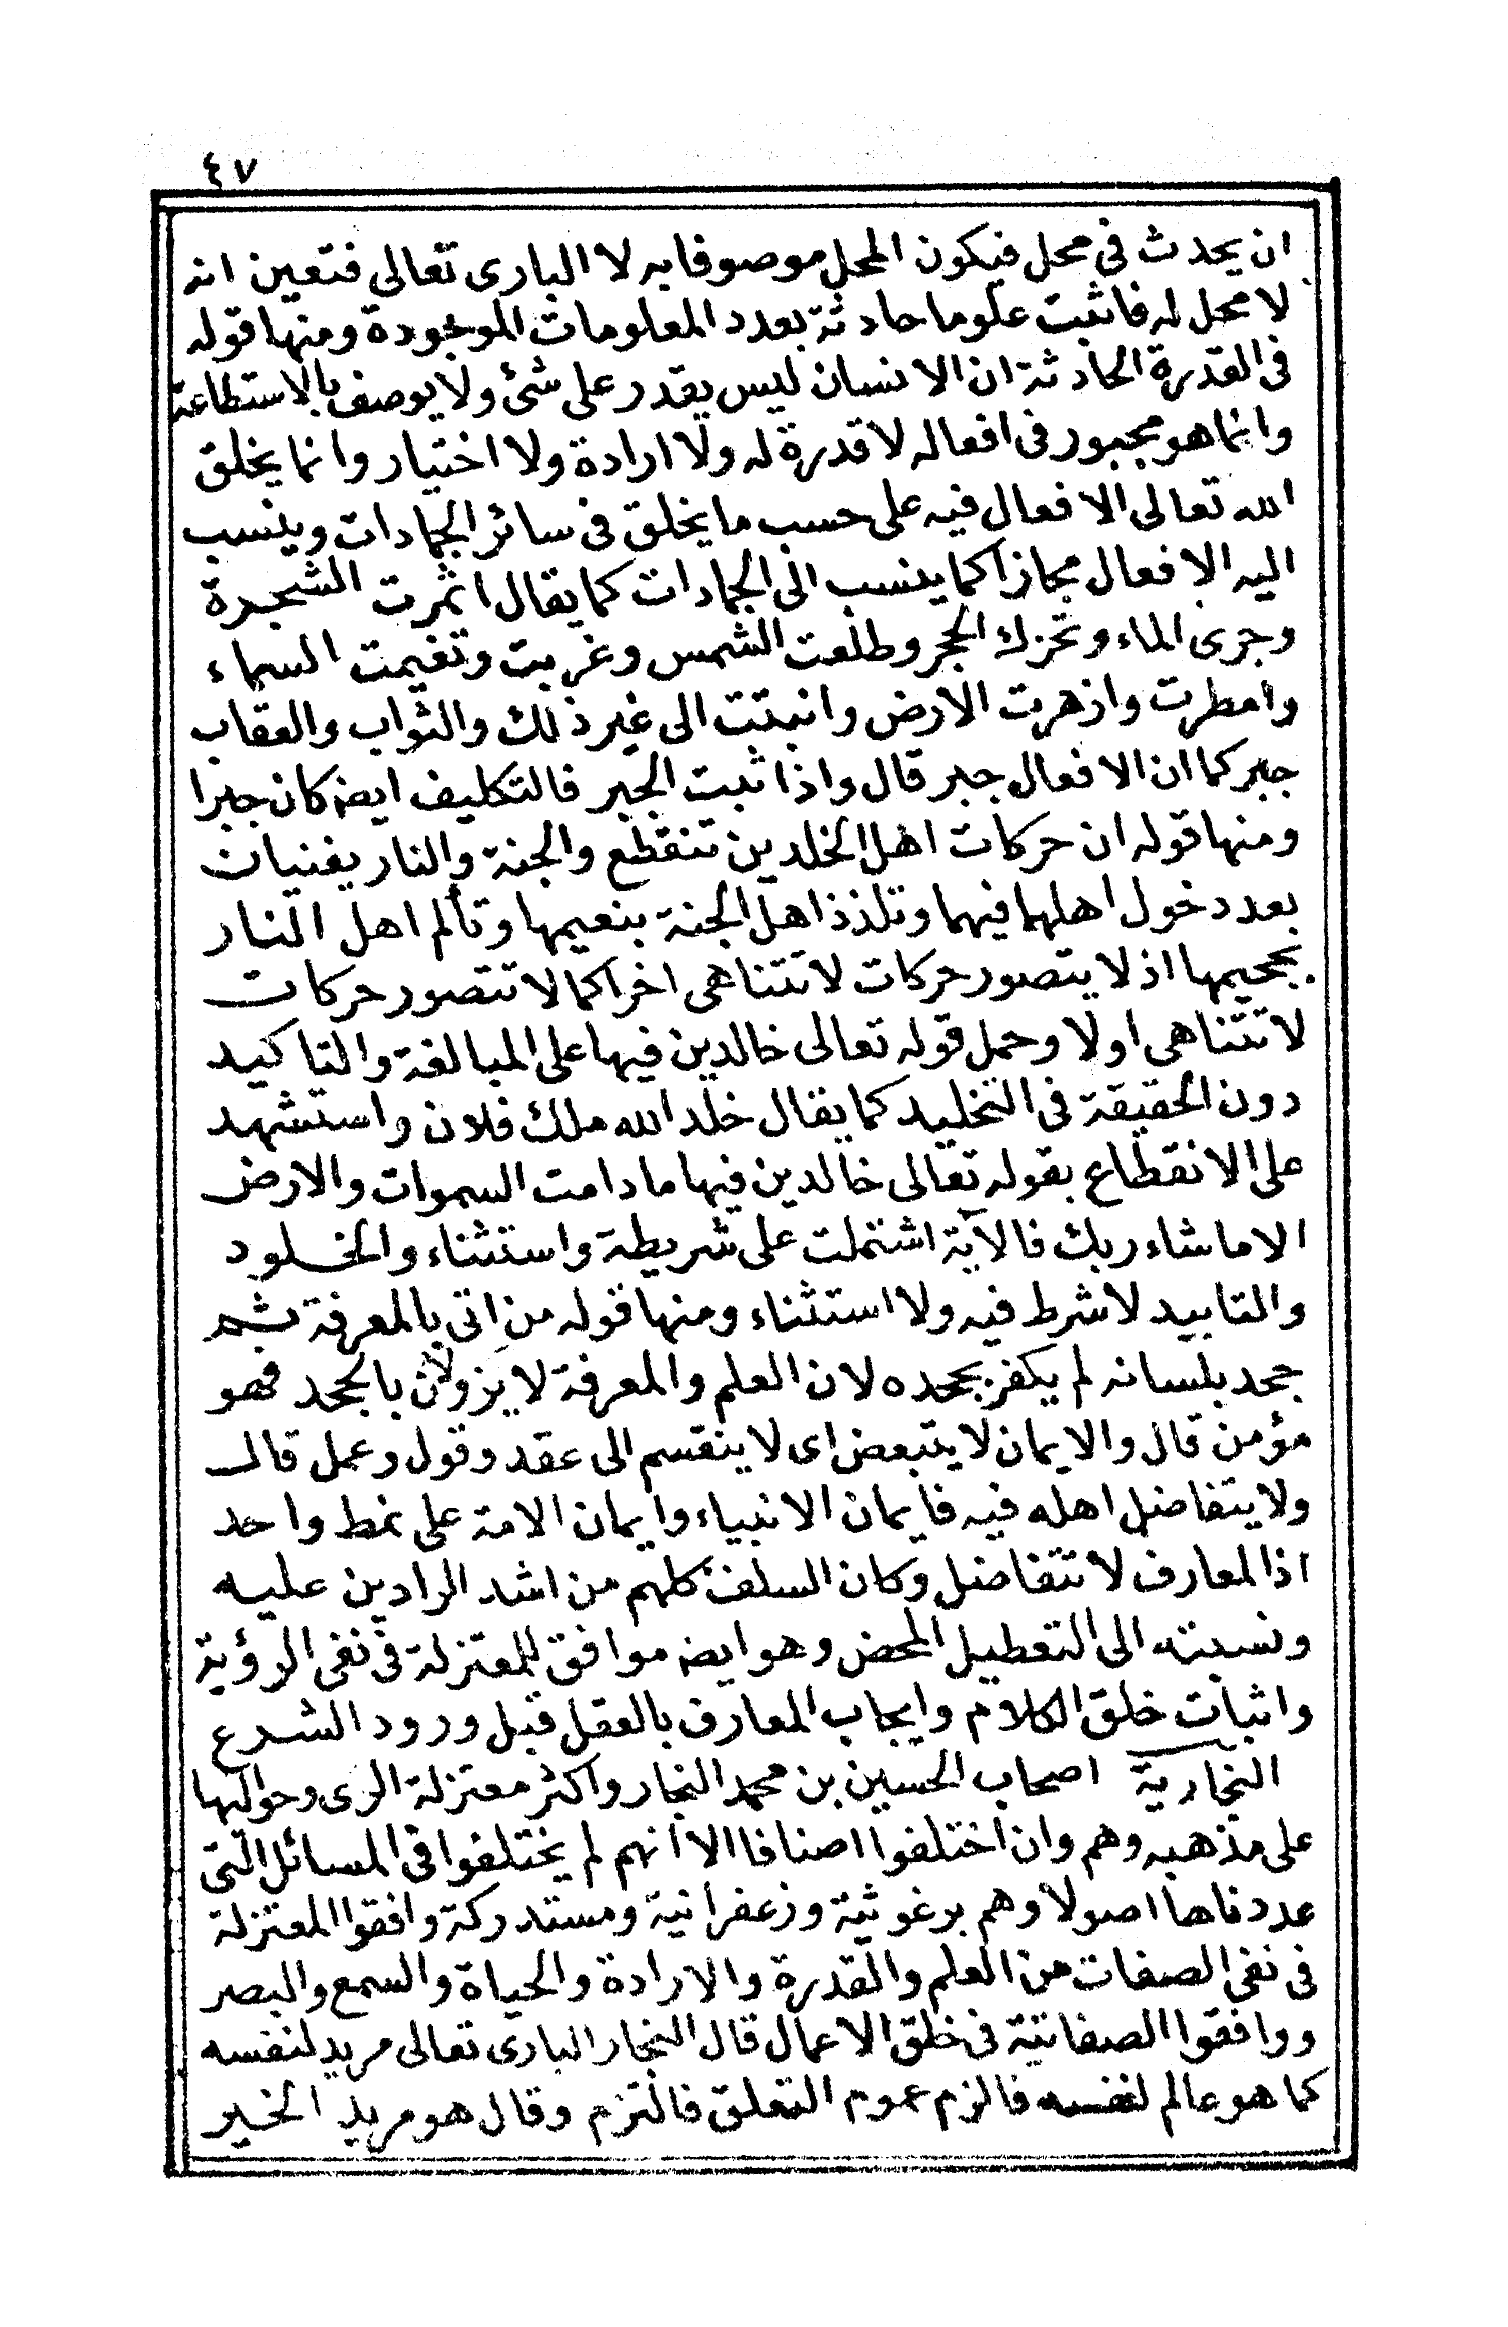 ٤٧
ان يحدث فى محل فيكون المحل موصوفا به لا البارى تعالى فتعين انه
لا محل له فاثبت علوما حادثة بعدد المعلومات الموجودة ومنها قوله
فى القدرة الحادثة ان الانسان ليس يقدر على شئ ولا يوصف بالاستطاعة
وانما هو مجبور فى افعاله لا قدرة له ولا ارادة ولا اختيار وانما يخلق
الله تعالى الافعال فيه على حسب ما يخلق فى سائر الجمادات وينسب
اليه الافعال مجازا كما ينسب الى الجمادات كما يقال اثمرت الشجرة
وجرى الماء وتحرك الحجر وطلعت الشمس وغربت وتغيمت السماء
وامطرت وازهرت الارض وانبتت الى غير ذلك والثواب والعقاب
جبر كما ان الافعال جبر قال واذا ثبت الجبر فالتكليف ايضه كان جبرا
ومنها قوله ان حركات اهل الخلدين تنقطع والجنة والنار يفنيان
بعد دخول اهلهما فيهما وتلذذ اهل الجنة بنعيمها وتألم اهل النار
بجحيمها اذ لا يتصور حركات لا تتناهى اخرا كما لا تتصور حركات
لا تتناهى اولا وحمل قوله تعالى خالدين فيها على المبالغة والتاكيد
دون الحقيقة فى التخليد كما يقال خلد الله ملك فلان واستشهد
على الانقطاع بقوله تعالى خالدين فيها ما دامت السموات والارض
الا ما شاء ربك فالآية اشتملت على شريطة واستثناء والخلود
والتابيد لا شرط فيه ولا استثناء ومنها قوله من اتى بالمعرفة ثم
جحد بلسانه لم يكفر بجحده لان العلم والمعرفة لا يزولان بالجحد فهو
مؤمن قال والايمان لا يتبعض اى لا ينقسم الى عقد وقول وعمل قال
ولا يتفاضل اهله فيه فايمان الانبياء وايمان الامة على نمط واحد
اذ المعارف لا تتفاضل وكان السلف كلهم من اشد الرادين عليه
ونسبته الى التعطيل المحض وهو ايضه موافق للمعتزلة فى نفى الرؤية
واثبات خلق الكلام وايجاب المعارف بالعقل قبل ورود الشرع
النجارية اصحاب الحسين بن محمد النجار واكثر معتزلة الرى وحواليها
على مذهبه وهم وان اختلفوا اصنافا الا انهم لم يختلفوا فى المسائل التى
عددناها اصولا وهم برغوثية وزعفرانية ومستدركة وافقوا المعتزلة
فى نفى الصفات من العلم والقدرة والارادة والحياة والسمع والبصر
ووافقوا الصفاتية فى خلق الاعمال قال النجار البارى تعالى مريد لنفسه
كما هو عالم لنفسه فالزم عموم التعلق فالتزم وقال هو مريد الخير